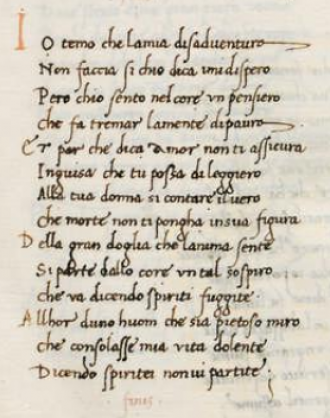 IO temo che lamia disaduentura
Non faccia si chio dica imi dispero
Pero chio sento nel core vn pensiero
che fa tremar lamente di paura
Et par che dica Amor non ti assicura
Inguisa che tu possa di leggiero
Alla tua donna si contare il uero
che morte non ti pongha in sua figura
Della gran doglia che lanima sente
Si parte dallo core vn tal sospiro
che va dicendo spiriti fuggite
Allhor duno huom che sia pietoso miro
che consolasse mia vita dolente
Dicendo spiritei non ui partite
finis